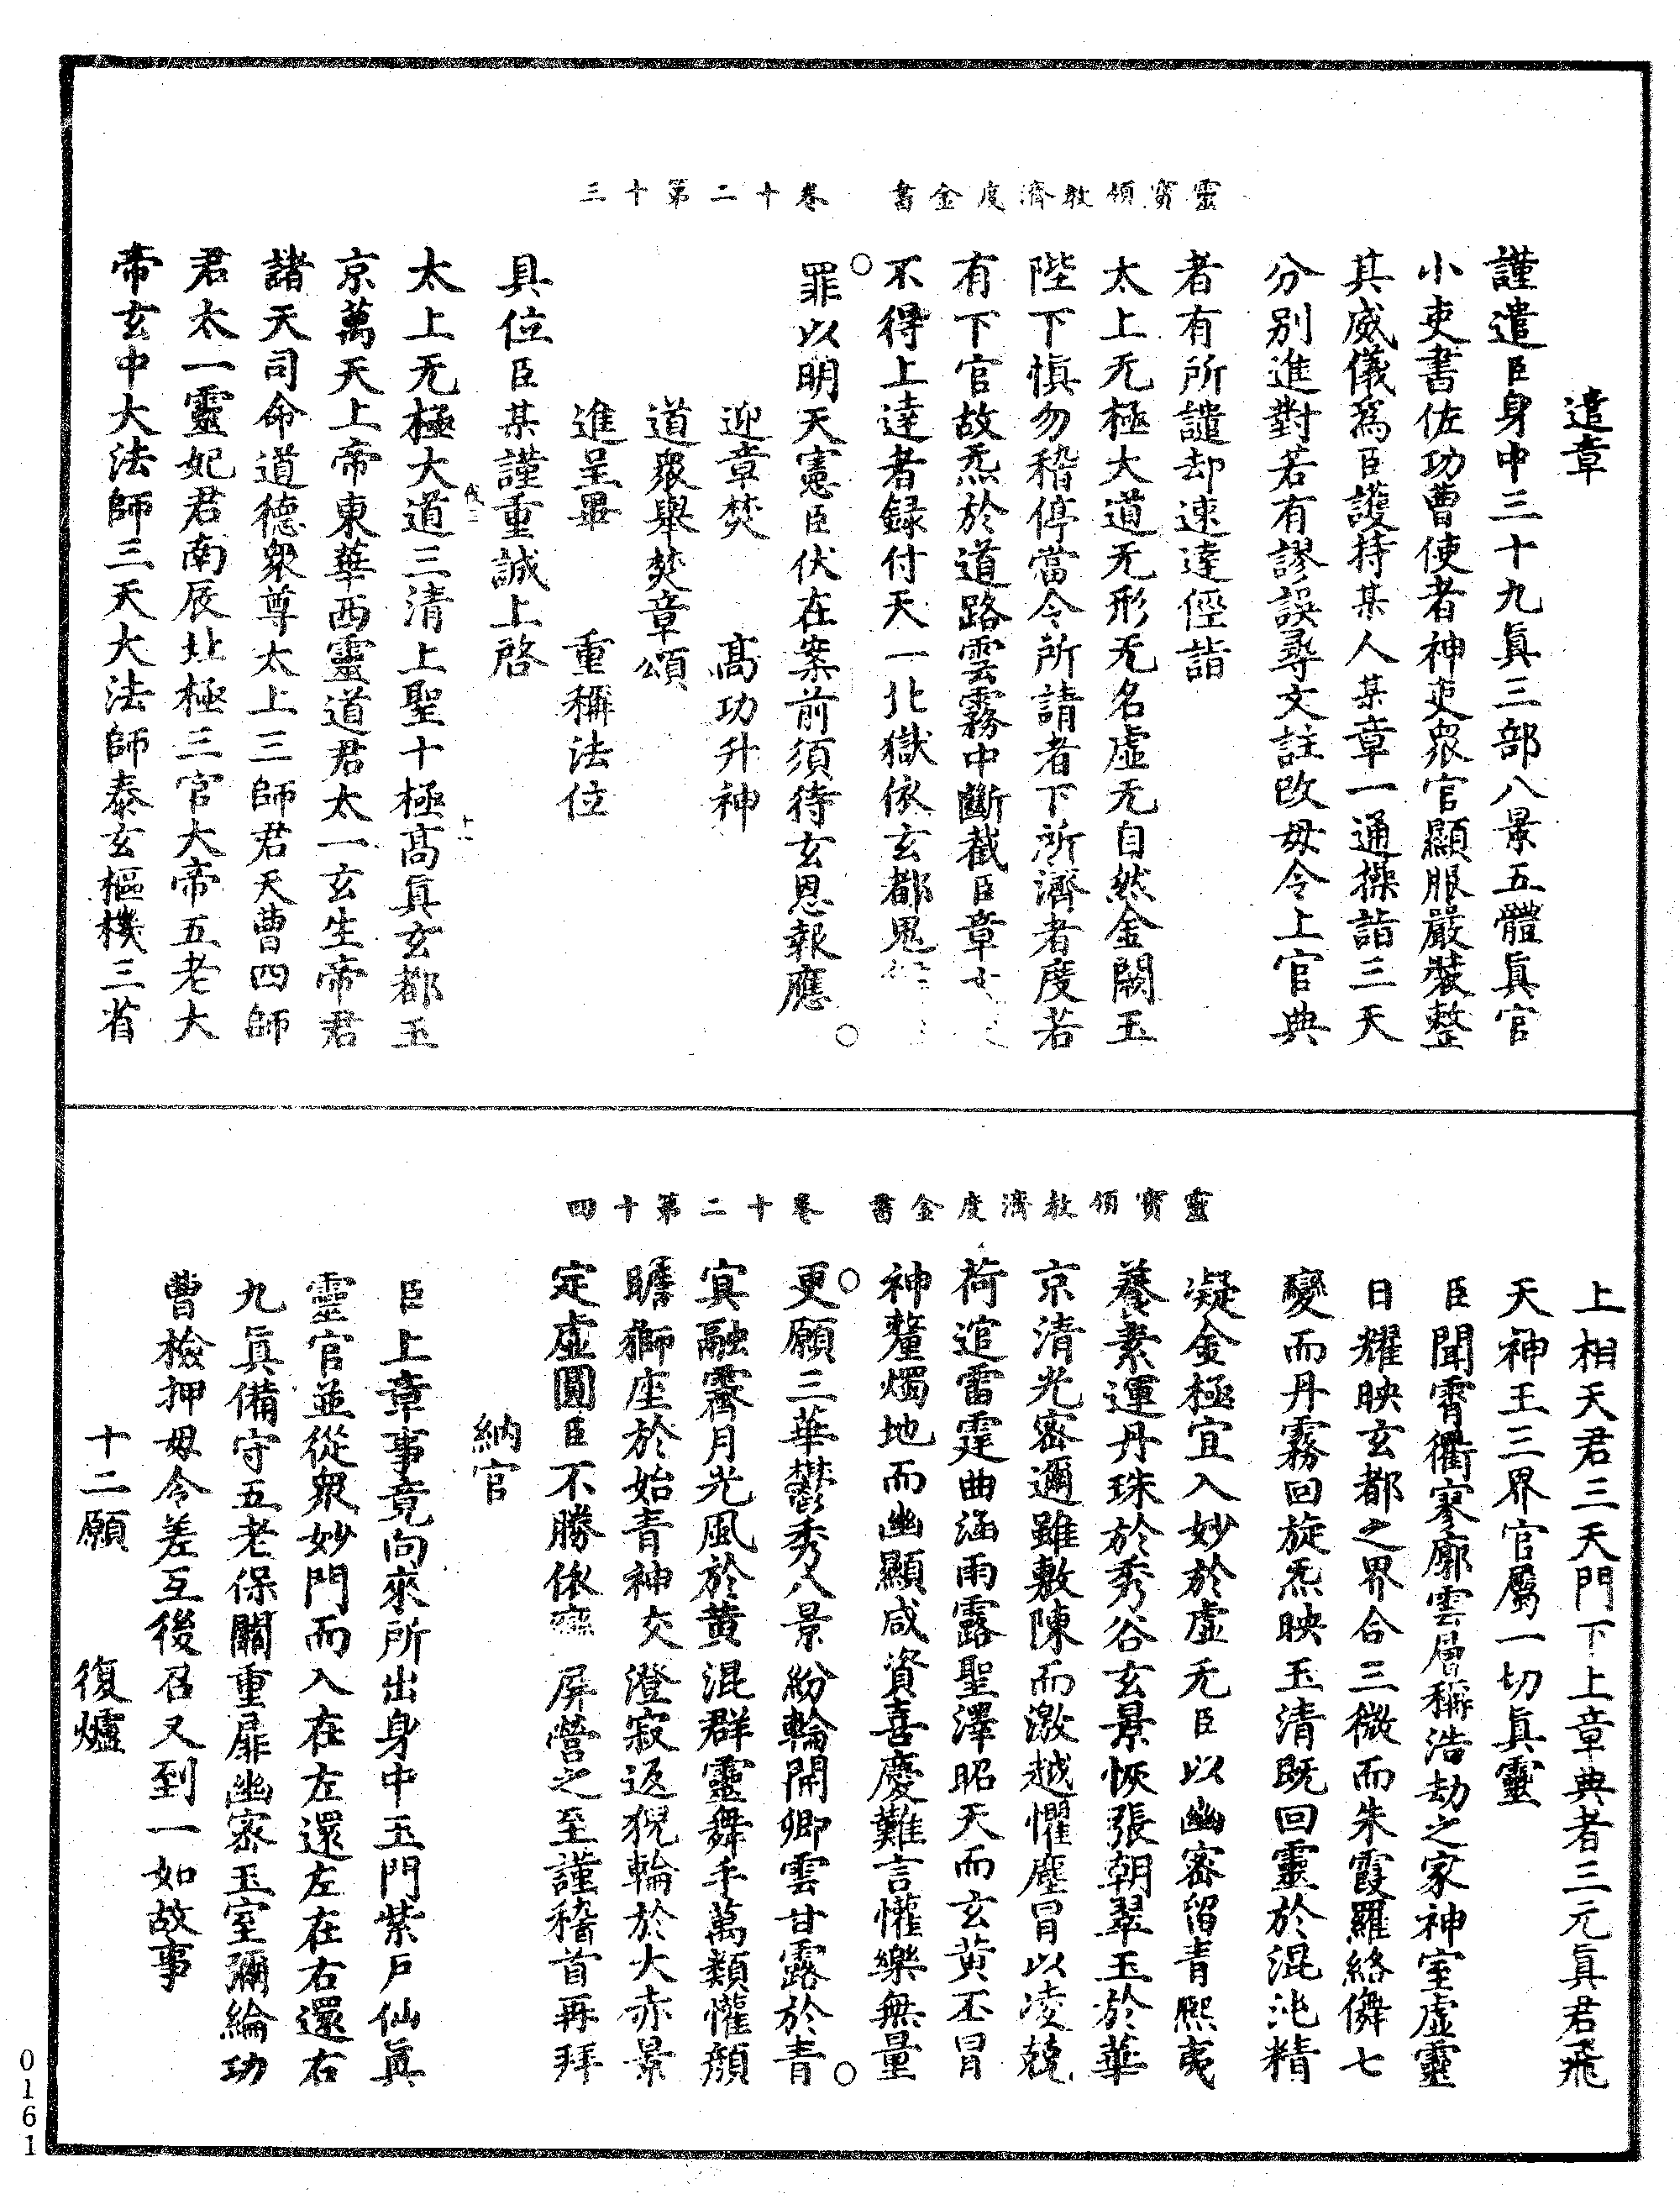 靈寳領教濟度金書　卷十二第十三
遣章
謹遣臣身中三十九眞三部八景五體眞官
小吏書佐功曹使者神吏衆官顯服嚴裝整
其威儀爲臣護持某人某章一通操詣三天
分別進對若有謬誤尋文註改毋令上官典
者有所譴却速達徑詣
太上无極大道无形无名虛无自然金闕玉
陛下愼勿稽停當令所請者下所濟者度若
有下官故炁於道路雲霧中斷截臣章
不得上達者録付天一北獄依玄都鬼
罪以明天憲臣伏在案前須待玄恩報應
迎章焚　高功升神
道衆舉焚章頌
進呈畢　重稱法位
具位臣某謹重誠上啓
太上无極大道三清上聖十極高眞玄都玉
京萬天上帝東華西靈道君太一玄生帝君
諸天司命道德衆尊太上三師君天曹四師
君太一靈妃君南辰北極三官大帝五老大
帝玄中大法師三天大法師泰玄樞機三省
靈寳領教濟度金書　卷十二第十四
上相天君三天門下上章典者三元眞君飛
天神王三界官屬一切眞靈
臣聞霄衢寥廓雲層稱浩劫之家神室虛靈
日耀映玄都之界合三微而朱霞羅絡儛七
變而丹霧回旋炁映玉清旣回靈於混沌精
凝金極宜入妙於虛无臣以幽密留青熙夷
養素運丹珠於秀谷玄景恢張朝翠玉於華
京清光密邇雖敷陳而激越懼塵冒以凌兢
荷逭雷霆曲涵雨露聖澤昭天而玄黃丕冒
神釐燭地而幽顯咸資喜慶難言懽樂無量
更願三華鬱秀八景紛輪開卿雲甘露於青
冥融霽月光風於黄混群靈舞手萬類懽顔
瞻獅座於始青神交澄寂返猊輪於大赤景
定虛圓臣不勝依　屏營之至謹稽首再拜
納官
臣上章事竟向來所出身中玉門紫戶仙眞
靈官並從衆妙門而入在左還左在右還右
九眞備守五老保關重扉幽密玉室彌綸功
曹檢押毋令差互後召又到一如故事
十二願　復爐
0161